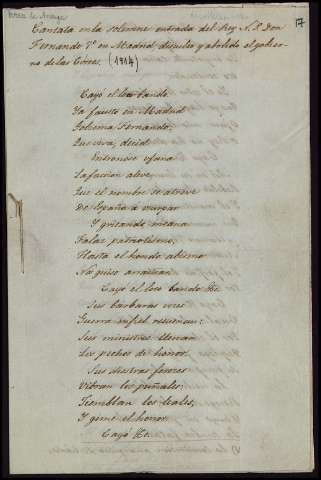 17
Cantata en la solemne entrada del Rey N. S. Don
Fernando 7º en Madrid disuelto y abolido el gobier-
no de las Cortes. (1814)
Cayó el loco bando
Ya fausto en Madrid
Gobierna Fernando;
Que viva, decid
Entronose ufana
La faccion aleve,
Que el nombre se atreve
De España á usurpar
Y gritando insana
Falaz patriotismo,
Hasta el hondo abismo
Nos quiso arrastrar.
Cayó el loco bando &c.
Sus barbaras voces
Guerra infiel resuenan:
Sus ministros llenan
Los pechos de horror.
Sus diestras feroces
Vibran los puñales;
Tiemblan los leales,
Y gime el honor.
Cayó &c.